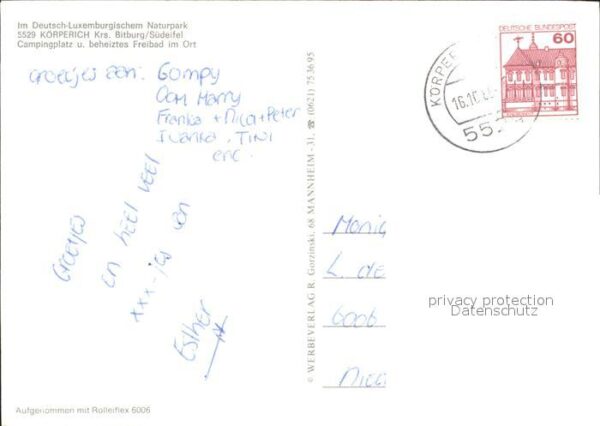 Im Deutsch-Luxemburgischem Naturpark
5529 KÖRPERICH Krs. Bitburg/Südeifel
Campingplatz u. beheiztes Freibad im Ort
Groetjes aan: Gompy
Oom Harry
Franka + Nico + Peter
Ivanka, TINI
enc.
Groetjes
en heel veel
xxx-jes van
Esther
© WERBEVERLAG R. Gorzinski, 68 MANNHEIM-31, ☎ (0621) 75 36 95
DEUTSCHE BUNDESPOST
60
KÖRPE
16.10.
552
Monic
L. de
privacy protection
Datenschutz
6006
Aufgenommen mit Rolleiflex 6006